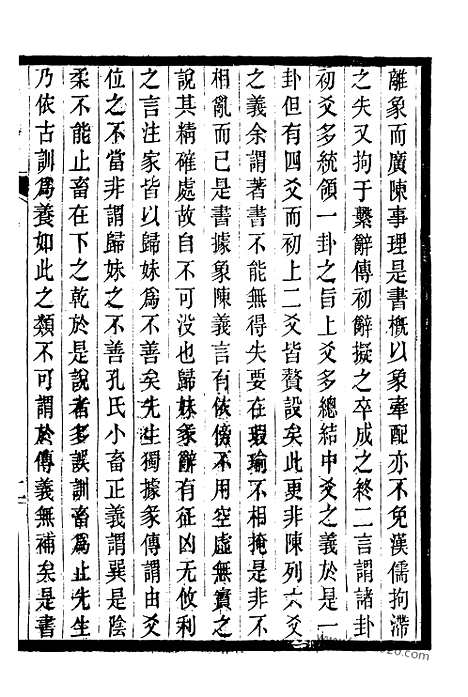 離象而廣陳事理是書概以象牽配亦不免漢儒拘滯
之失又拘于繫辭傳初辭擬之卒成之終二言謂諸卦
初爻多統領一卦之旨上爻多總結中爻之義於是一
卦但有四爻而初上二爻皆贅設矣此更非陳列六爻
之義余謂著書不能無得失要在瑕瑜不相掩是非不
相亂而已是書據象陳義言有依傍不用空虛無實之
說其精確處故自不可没也歸妹彖辭有征凶无攸利
之言注家皆以歸妹爲不善矣先生獨據彖傳謂由爻
位之不當非謂歸妹之不善孔氏小畜正義謂巽是陰
柔不能止畜在下之乾於是說者多誤訓畜爲止先生
乃依古訓爲養如此之類不可謂於傳義無補矣是書